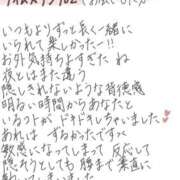 いつもよりずっと長く一緒に
いられて楽しかったー!!
お外気持ちよすぎたね
夜とはまた違う
隠しきれないような背徳感
明るい時間からあなたと
いるのが ドキドキしちゃいました
あれは ずるかったです
敏感になってしまって 反応して
隠そうとしても 腰まで素直に